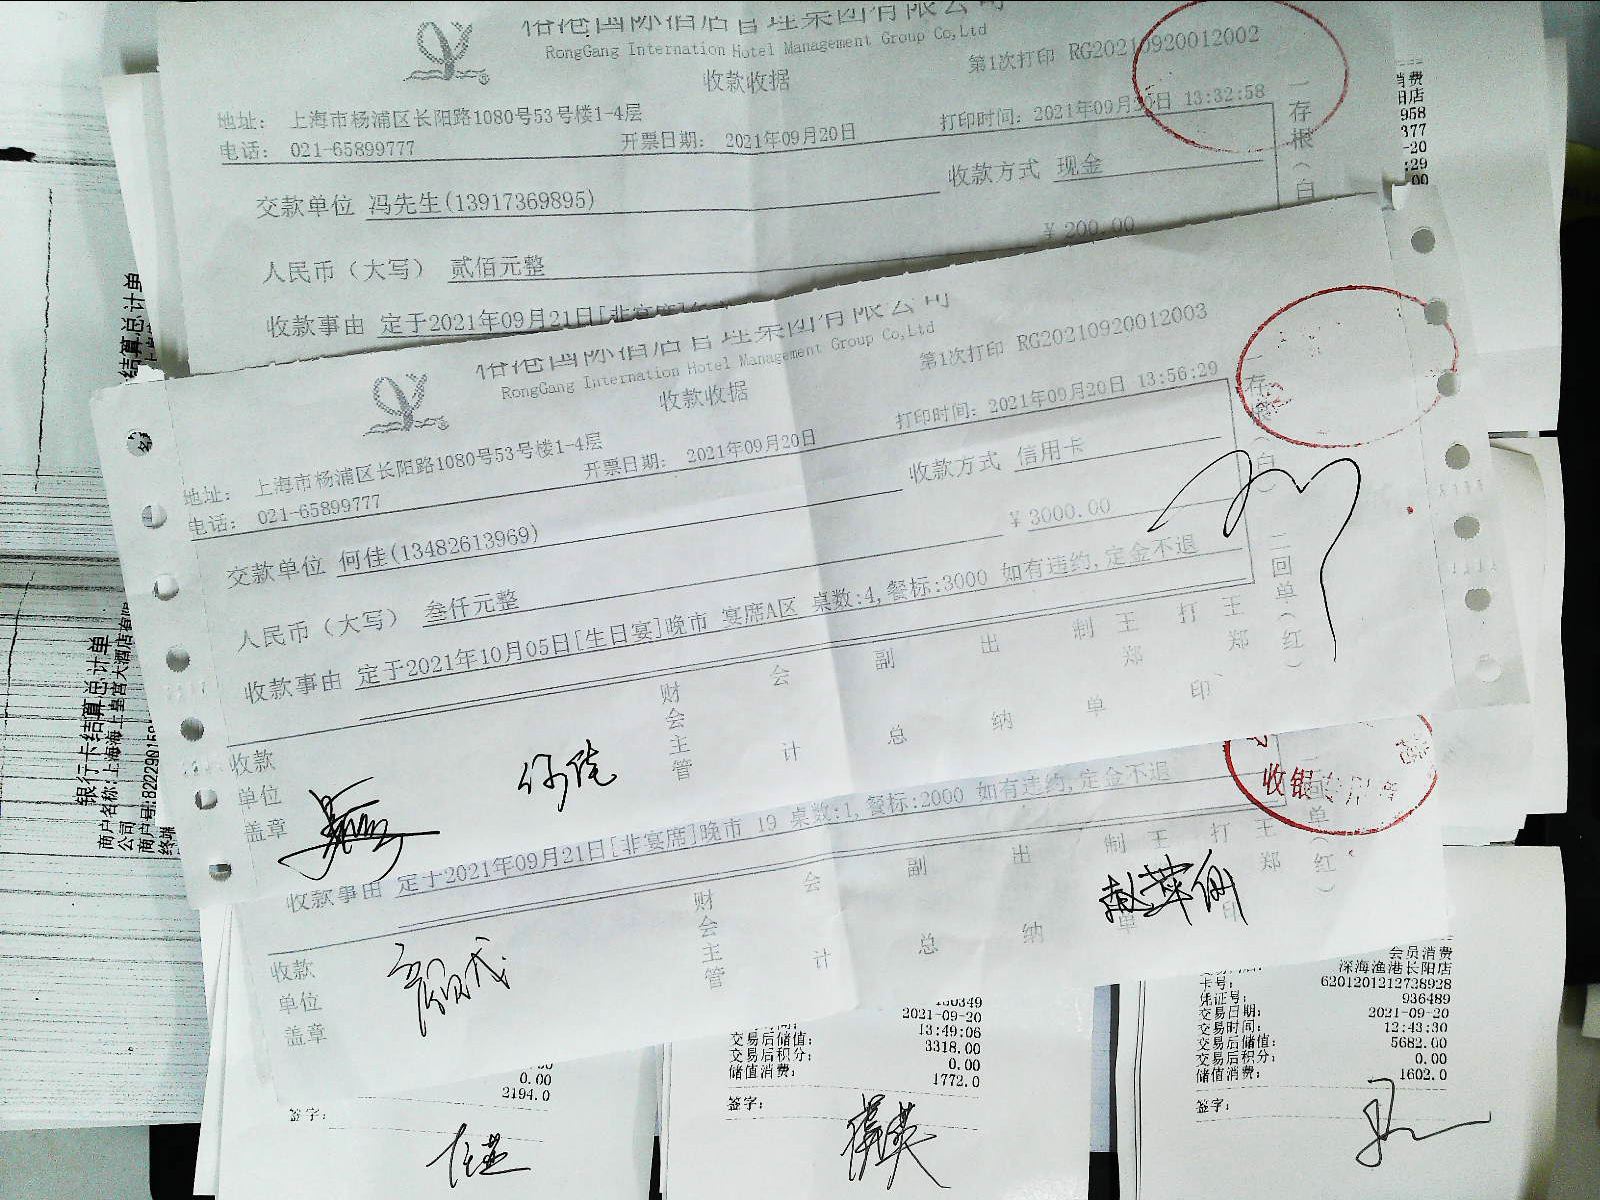 RongGang Internation Hotel Management Group Co,Ltd
收款收据
第1次打印 RG20210920012002
地址: 上海市杨浦区长阳路1080号53号楼1-4层
电话: 021-65899777
开票日期: 2021年09月20日
打印时间: 2021年09月20日 13:32:58
交款单位 冯先生(13917369895)
收款方式 现金
人民币（大写） 贰佰元整
¥ 200.00
收款事由 定于2021年09月21日[非宴席]
一存根(白
消费
阳店
958
377
-20
:29
00
RongGang Internation Hotel Management Group Co,Ltd
收款收据
第1次打印 RG20210920012003
地址: 上海市杨浦区长阳路1080号53号楼1-4层
电话: 021-65899777
开票日期: 2021年09月20日
打印时间: 2021年09月20日 13:56:29
交款单位 何佳(13482613969)
收款方式 信用卡
人民币（大写） 叁仟元整
¥ 3000.00
收款事由 定于2021年10月05日[生日宴]晚市 宴席A区 桌数:4,餐标:3000 如有违约,定金不退
二回单(红)
收款单位盖章
财会主管
会计
副总
出纳
制单
王郑
打印
王郑
何佳
收款事由 定于2021年09月21日[非宴席]晚市 19 桌数:1,餐标:2000 如有违约,定金不退
收银
单(红)
收款单位盖章
财会主管
会计
副总
出纳
制单
王
打印
王郑
结算总计单
银行卡结算总计单
商户名称:上海海上皇宫大酒店有限
公司
终端
0.00
2194.0
签字:
2021-09-20
13:49:06
交易后储值: 3318.00
交易后积分: 0.00
储值消费: 1772.0
签字:
会员消费
深海渔港长阳店
卡号: 6201201212738928
凭证号: 936489
交易日期: 2021-09-20
交易时间: 12:43:30
交易后储值: 5682.00
交易后积分: 0.00
储值消费: 1602.0
签字: